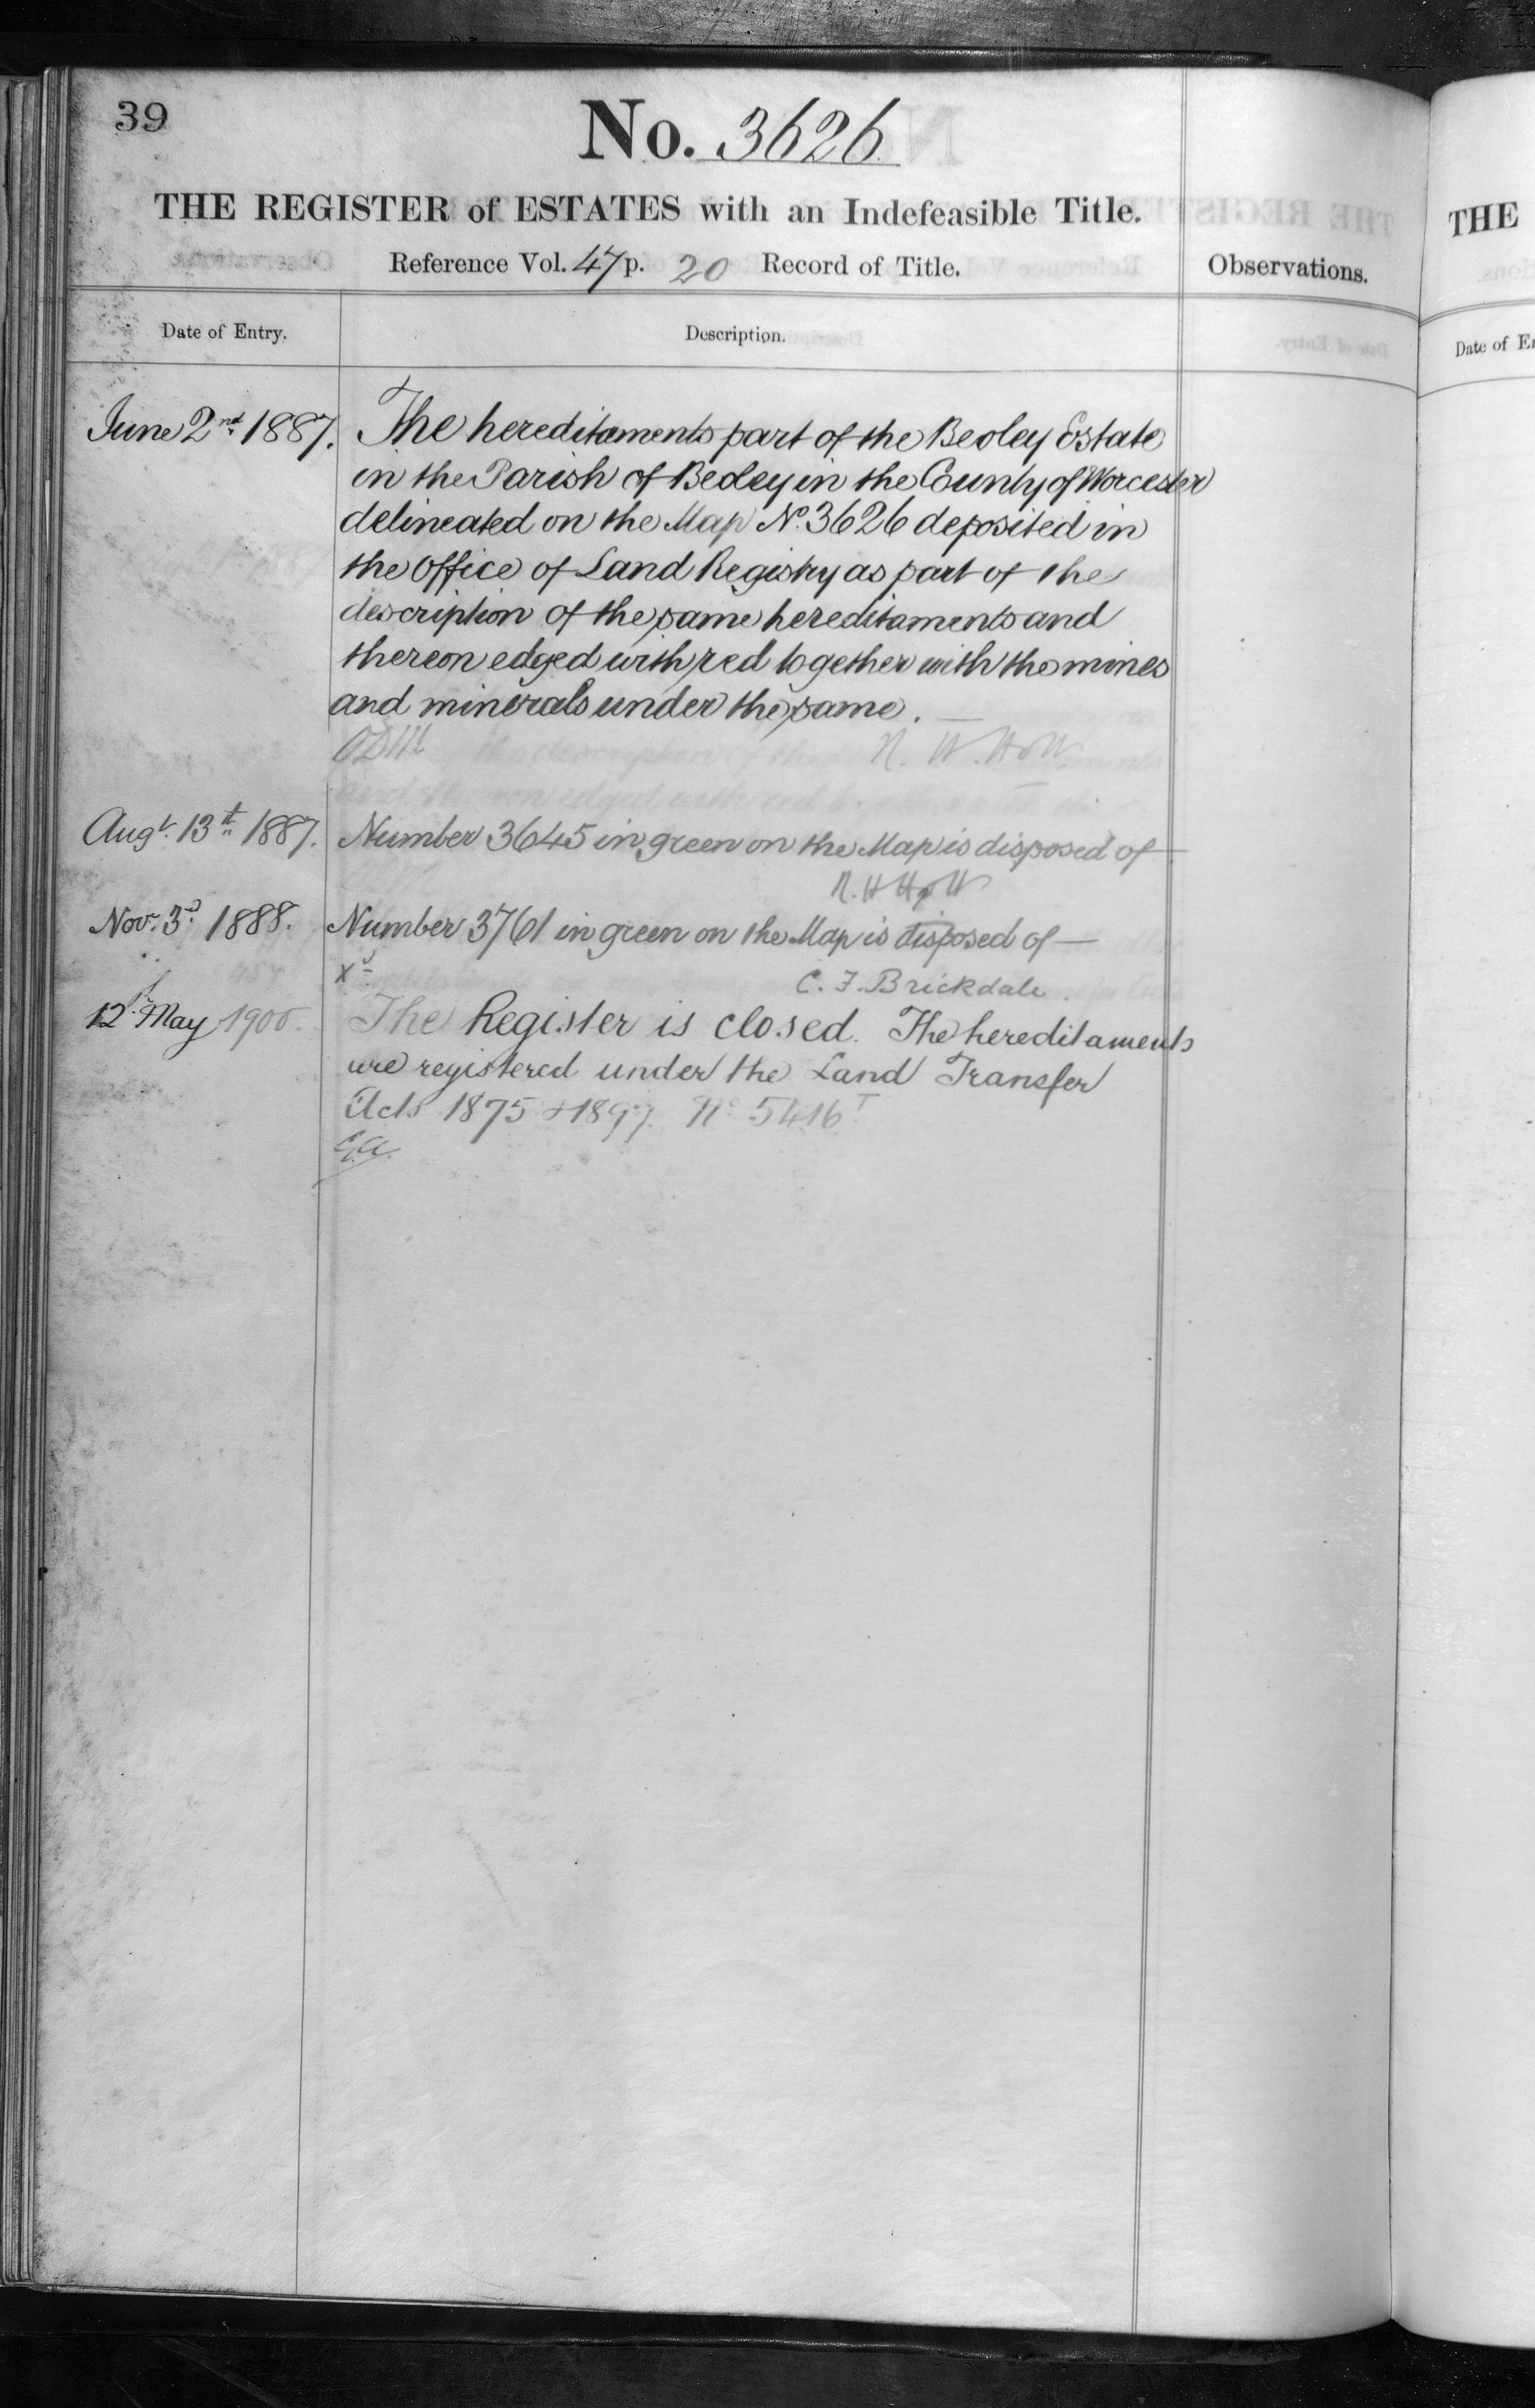 39
No. 3626
THE REGISTER of ESTATES with an Indefeasible Title.
Reference Vol. 47 p. 20 Record of Title.
Observations.
Date of Entry.
Description.
June 2nd 1887.
The hereditaments part of the Beoley Estate
in the Parish of Beoley in the County of Worcester
delineated on the Map No. 3626 deposited in
the Office of Land Registry as part of the
description of the same hereditaments and
thereon edged with red together with the mines
and minerals under the same.
Augt. 13th 1887.
Number 3645 in green on the Map is disposed of
Novr. 3d 1888.
Number 3761 in green on the Map is disposed of —
C. F. Brickdale.
12th May 1900.
The Register is closed. The hereditaments
are registered under the Land Transfer
Acts 1875 & 1897. No. 5416
THE
Date of